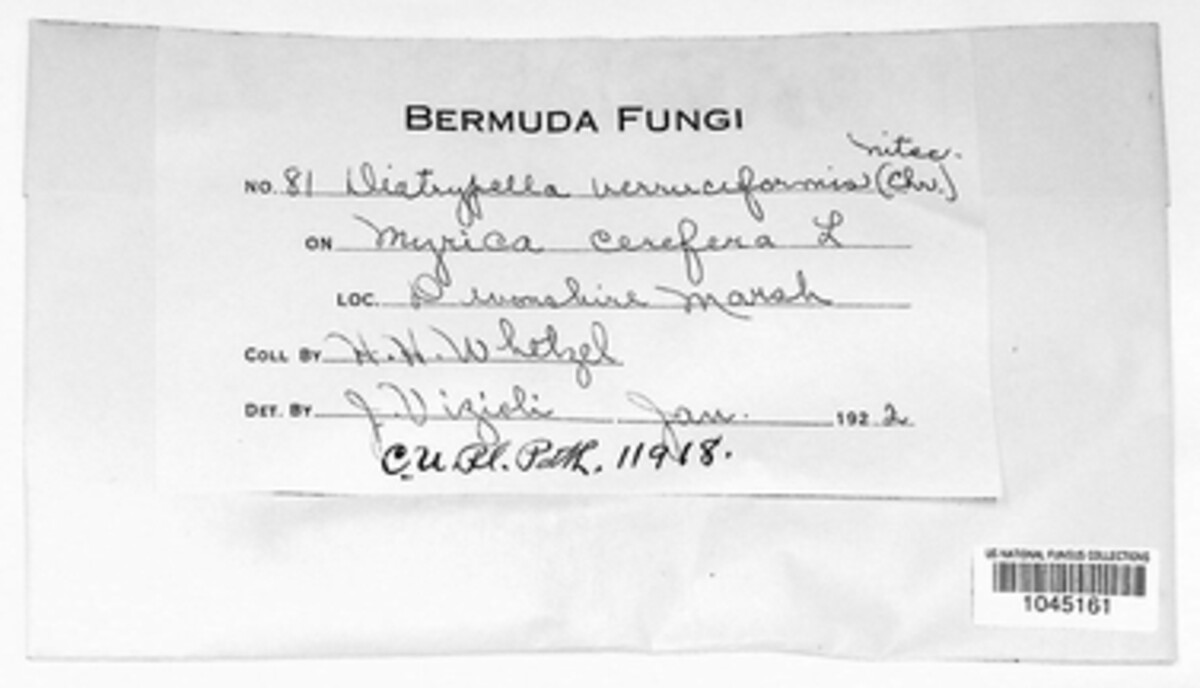 BERMUDA FUNGI
NO. 81 Diatrypella verruciformis (Ehr.) Nitsc.
ON Myrica cerefera L
LOC. Devonshire Marsh
COLL BY H. H. Whetzel
DET. BY J. Vizioli Jan. 1922.
C.U. Pl. Path. 11918.
US NATIONAL FUNGUS COLLECTIONS
1045161